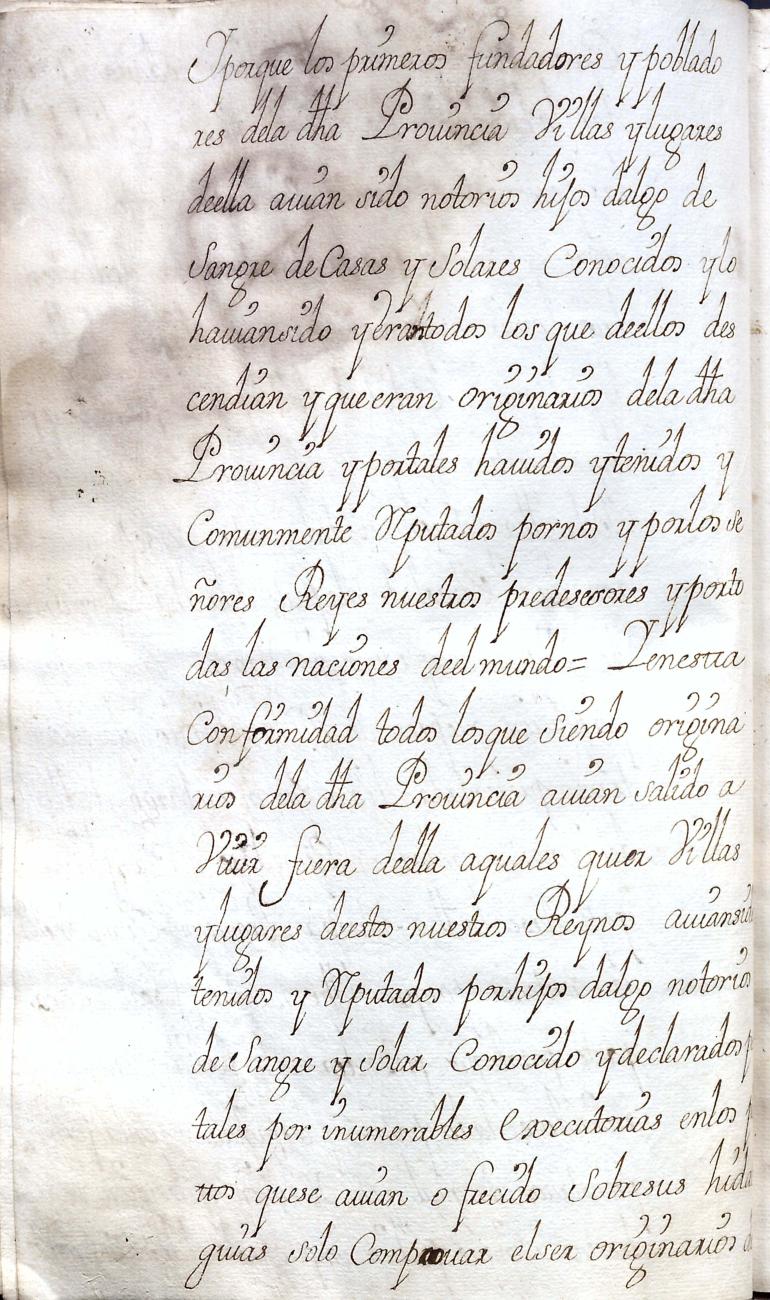 Yporque los primeros fundadores y poblado
res dela dha Prouincia Villas ylugares
deella auian sido notorios hijos dalgo de
Sangre de Casas y Solares Conocidos ylo
hauian sido yerantodos los que deellos des
cendian y que eran originarios dela dha
Prouincia yportales hauidos ytenidos y
Comunmente Rputados pornos y porlos se
ñores Reyes nuestros predesesores yporto
das las naciones deel mundo= Yenestta
Conformidad todos losque siendo origina
rios dela dha Prouincia auian salido a
Viuir fuera deella aquales quier Villas
ylugares deestos nuestros Reynos auian
tenidos y Rputados porhijos dalgo notorios
de Sangre y Solar Conocido ydeclarados
tales por inumerables Executorias enlos
ttos quese auian ofrecido Sobresus hida
guias solo Comprouar elser originarios